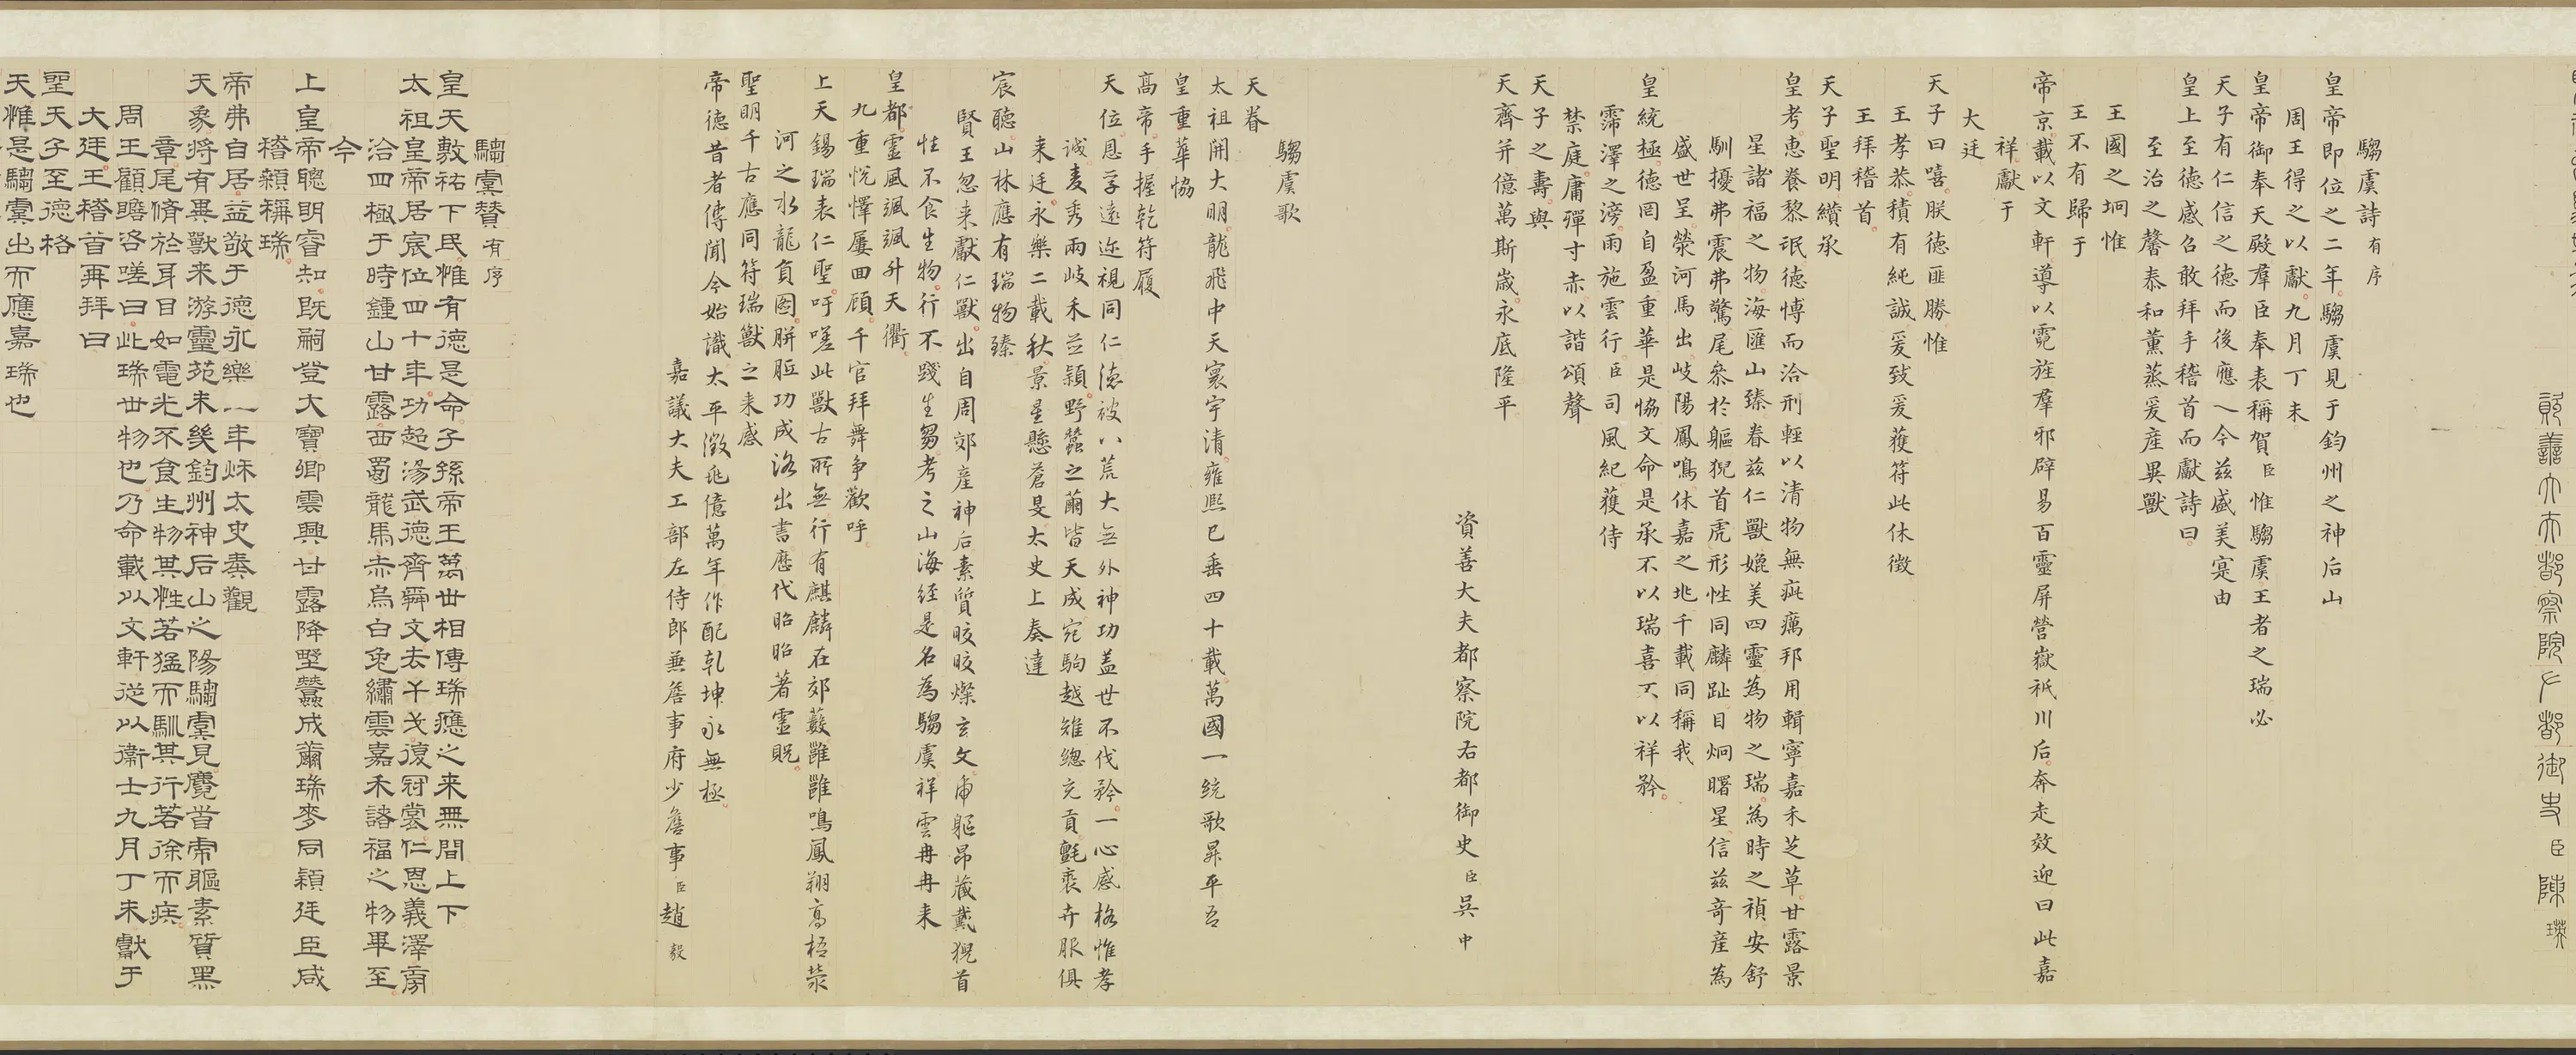 資善大夫都察院左都御史臣陳瑛
騶虞詩有序
皇帝即位之二年騶虞見于鈞州之神后山
周王得之以獻九月丁未
皇帝御奉天殿羣臣奉表稱賀臣惟騶虞王者之瑞必
天子有仁信之德而後應今茲盛美寔由
皇上至德感召敢拜手稽首而獻詩曰
至治之馨泰和薰蒸爰産異獸
王國之坰惟
王不有歸于
帝京載以文軒導以霓旌羣邪辟易百靈屏營嶽祇川后奔走效迎曰此嘉
祥獻于
大廷
天子曰嘻朕德匪勝惟
王孝恭積有純誠爰致爰獲符此休徵
王拜稽首
天子聖明纘承
皇考惠養黎珉德博而洽刑輕以清物無疵癘邦用輯寧嘉禾芝草甘露景
星諸福之物海匯山臻眷茲仁獸媲美四靈為物之瑞為時之禎安舒
馴擾弗震弗驚尾參於軀猊首虎形性同麟趾目炯曙星信茲奇産為
盛世呈滎河馬出岐陽鳳鳴休嘉之兆千載同稱我
皇統極德罔自盈重華是協文命是承不以瑞喜不以祥矜
霈澤之滂雨施雲行臣司風紀獲侍
禁庭庸殫寸赤以諧頌聲
天子之壽與
天齊并億萬斯歲永底隆平
資善大夫都察院右都御史臣吳中
騶虞歌
天眷
太祖開大明龍飛中天寰宇清雍熙已垂四十載萬國一統歌昇平吾
皇重華協
高帝手握乾符履
天位恩孚遠迩視同仁德被八荒大無外神功蓋世不伐矜一心感格惟孝
誠麦秀兩岐禾並穎野蠶之繭皆天成宛駒越雉總充貢氈裘卉服俱
来廷永樂二載秋景星懸蒼旻太史上奏達
宸聽山林應有瑞物臻
賢王忽来獻仁獸出自周郊産神后素質晈晈燦玄文甝軀昂藏戴猊首
性不食生物行不踐生芻考之山海经是名為騶虞祥雲冉冉来
皇都靈風颯颯升天衢
九重恱懌屢回顧千官拜舞争歡呼
上天錫瑞表仁聖吁嗟此獸古所無行有麒麟在郊薮雝雝鳴鳳翔高梧滎
河之水龍負圖胼胝功成洛出書應代昭昭著靈貺
聖明千古應同符瑞獸之来感
帝德昔者傳聞今始識太平徵兆億萬年作配乾坤永無極
嘉議大夫工部左侍郎兼詹事府少詹事臣趙毅
騶虞賛有序
皇天敷祐下民惟有德是命子孫帝王萬世相傳瑞應之来無間上下
太祖皇帝居宸位四十年功超湯武德齊舜文去干戈復冠裳仁恩義澤旁
洽四極于時鍾山甘露西蜀龍馬赤烏白兔繡雲嘉禾諸福之物畢至
今
上皇帝聰明睿知既嗣登大寶卿雲興甘露降野蠶成繭瑞麥同穎廷臣咸
稽顙稱瑞
帝弗自居益敬于德永樂二年秋太史奏觀
天象將有異獸来游靈苑未幾鈞州神后山之陽騶虞見麑首虎軀素質黑
章尾脩於身目如電光不食生物其性若猛而馴其行若徐而疾
周王顧瞻咨嗟曰此瑞世物也乃命載以文軒從以衞士九月丁未獻于
大廷王稽首再拜曰
聖天子至德格
天惟是騶虞出而應嘉瑞也